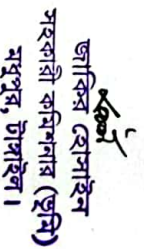 জাকির হোসাইন
সহকারী কমিশনার (ভূমি)
মধুপুর, টাংগাইল।